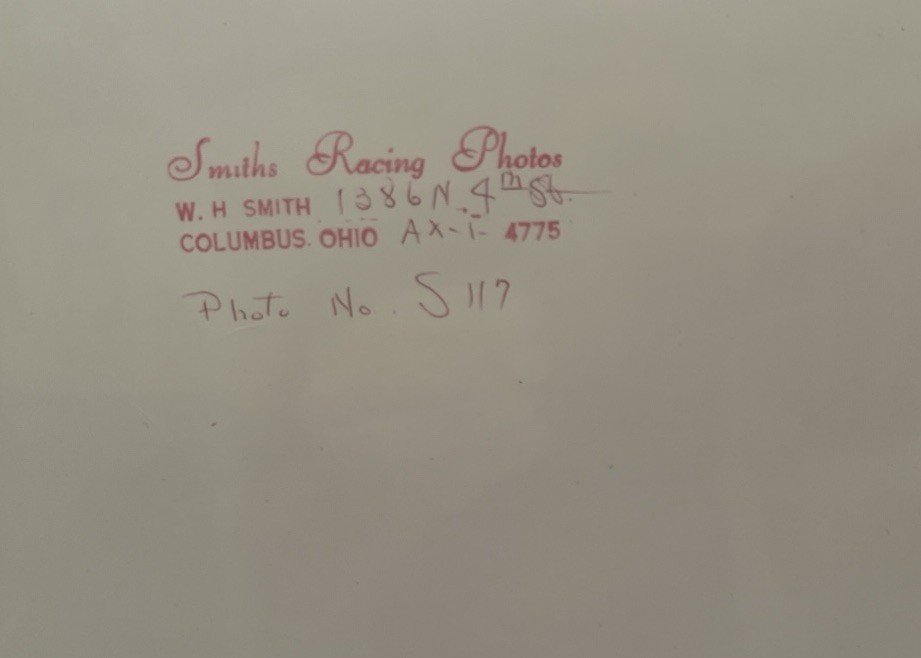 Smiths Racing Photos
W. H SMITH 1386 N. 4th St.
COLUMBUS. OHIO AX-1- 4775
Photo No. S 117